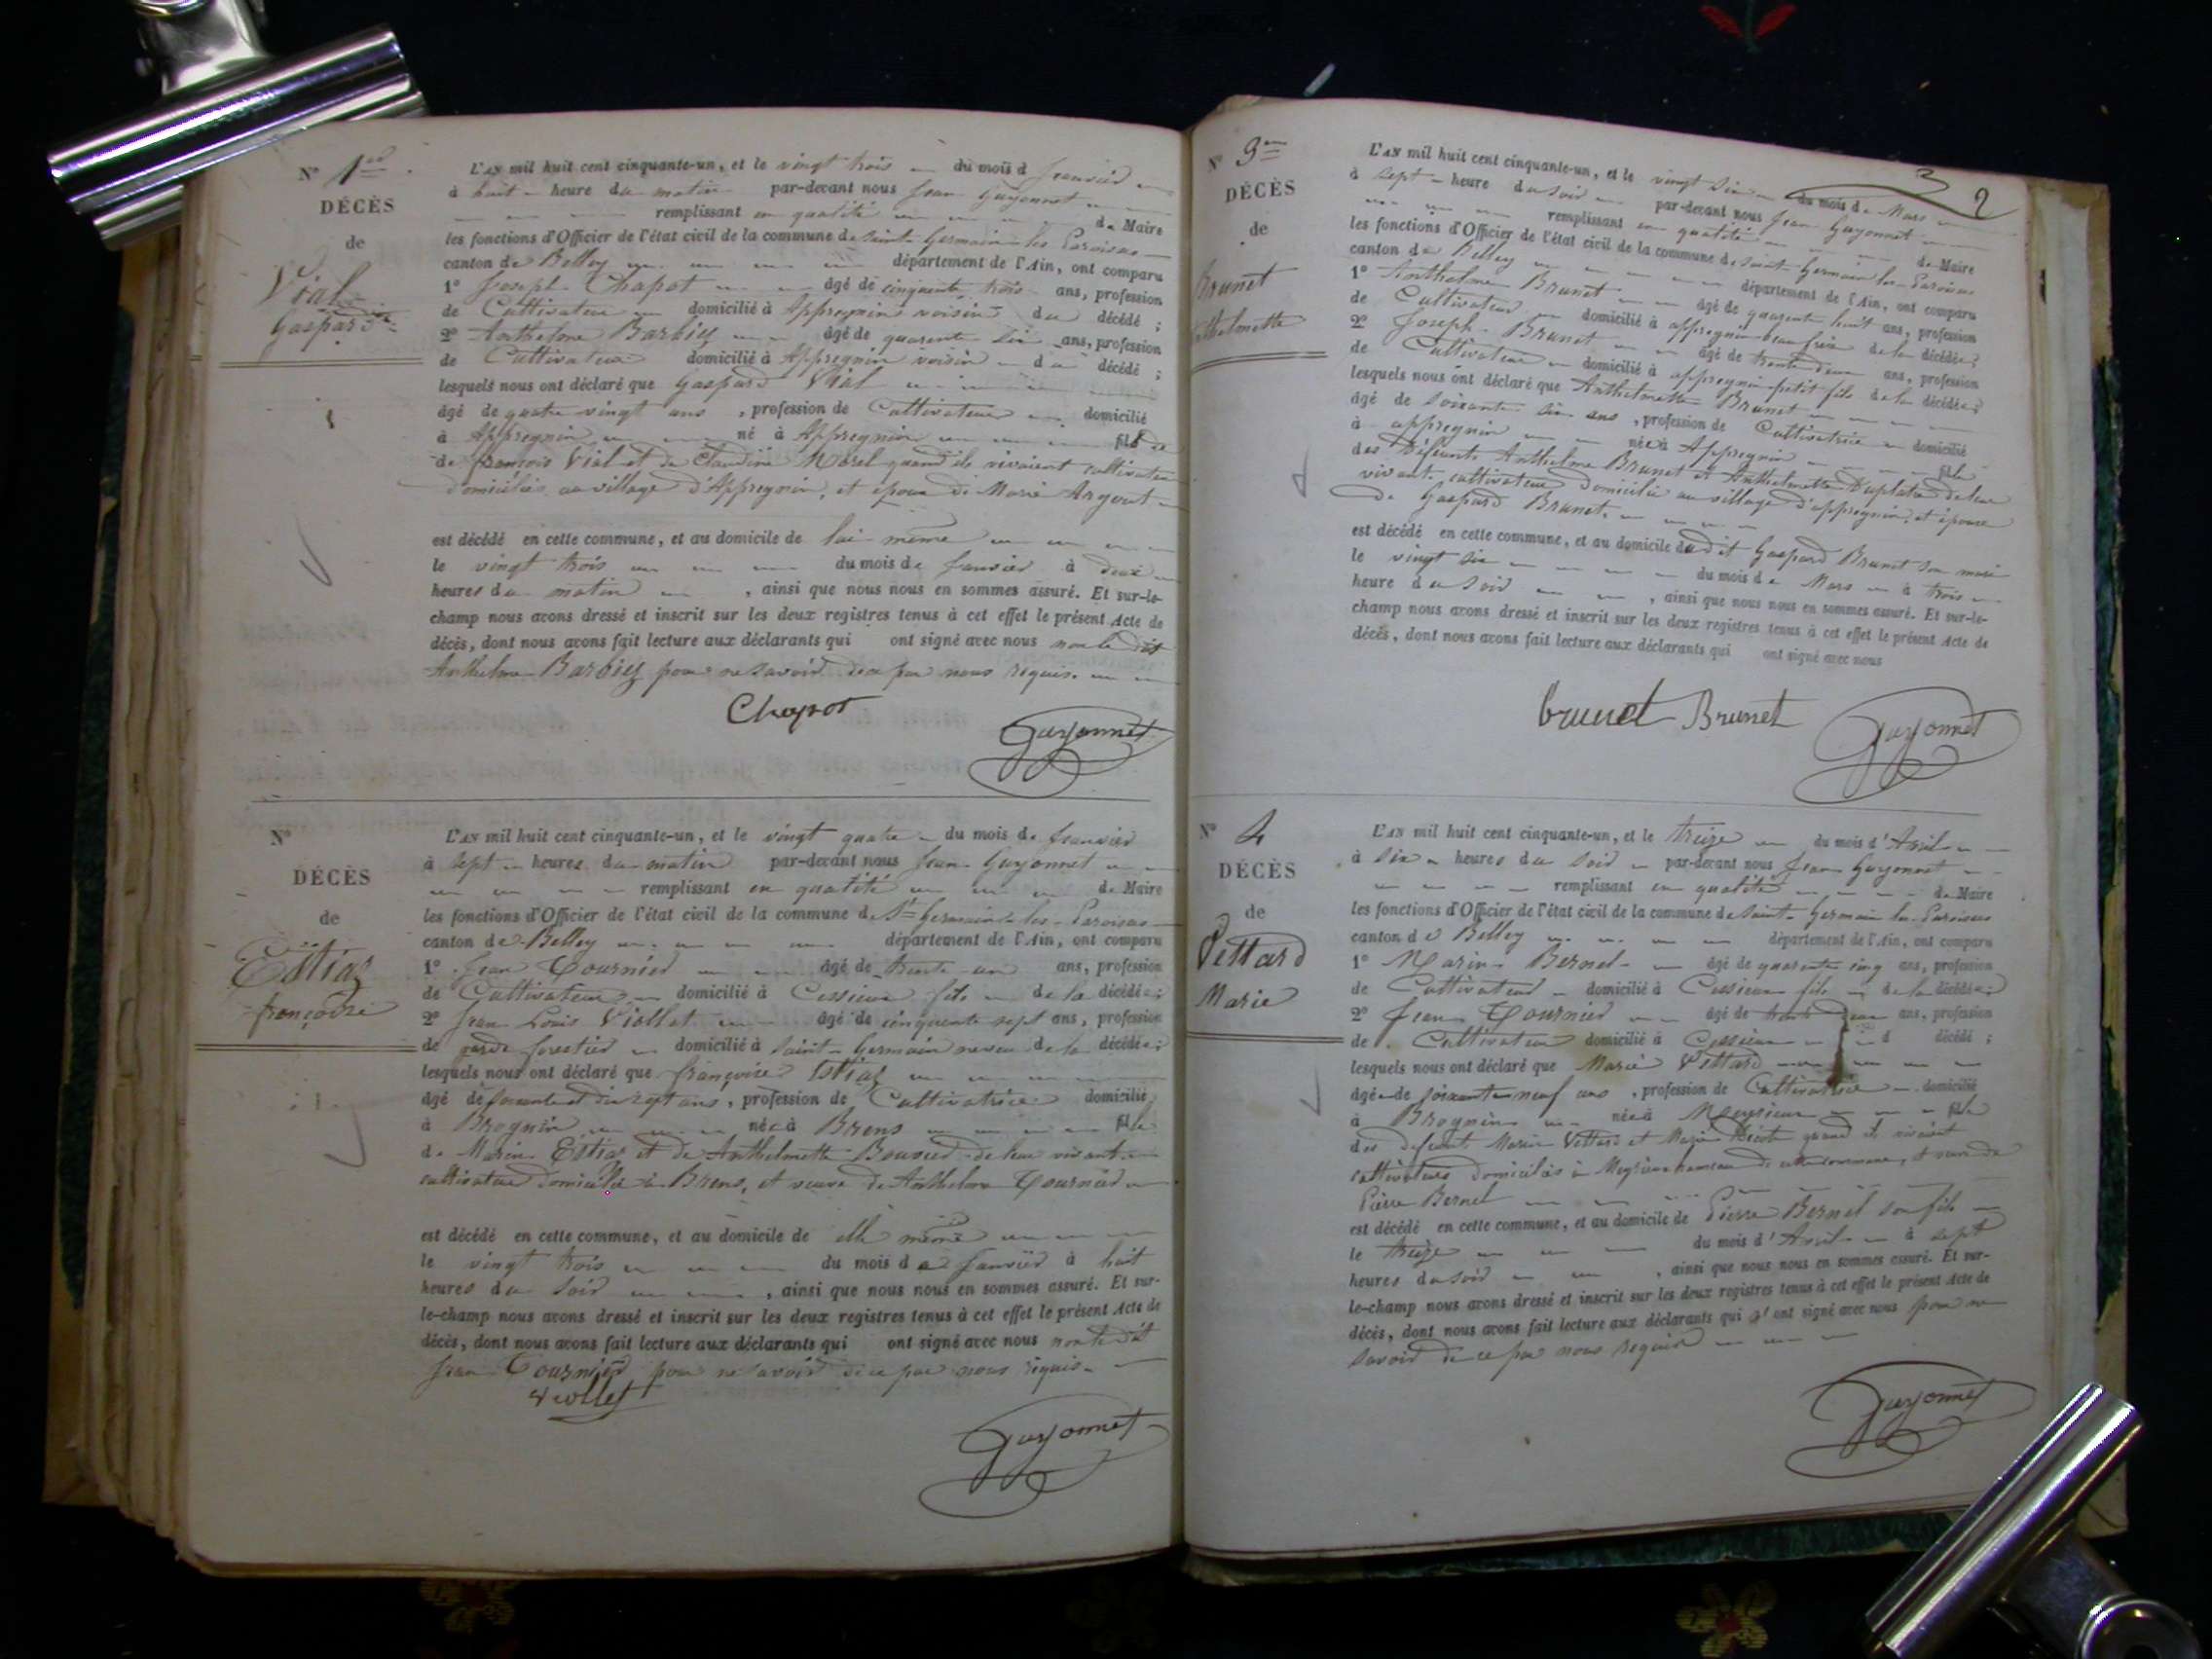 N° 1er
DÉCÈS
de
Vial
Gaspard
L'AN mil huit cent cinquante-un, et le vingt trois du mois d Janvier
à huit heure du matin par-devant nous Jean Guyonnet
remplissant en qualité de Maire
les fonctions d'Officier de l'état civil de la commune de Saint Germain les Paroisses
canton de Belley département de l'Ain, ont comparu
1° Joseph Chapot âgé de cinquante trois ans, profession
de Cultivateur domicilié à Appregnin voisin du décédé ;
2° Anthelme Barbier âgé de quarante six ans, profession
de Cultivateur domicilié à Appregnin voisin du décédé ;
lesquels nous ont déclaré que Gaspard Vial
âgé de quatre vingt ans, profession de Cultivateur domicilié
à Appregnin né à Appregnin fils
de françois Vial et de Claudine Morel quand ils vivaient cultivateurs
domiciliés au village d'Appregnin, et époux de Marie Argout
est décédé en cette commune, et au domicile de lui même
le vingt trois du mois de Janvier à deux
heures du matin, ainsi que nous nous en sommes assuré. Et sur-le-
champ nous avons dressé et inscrit sur les deux registres tenus à cet effet le présent Acte de
décès, dont nous avons fait lecture aux déclarants qui ont signé avec nous non le dit
Anthelme Barbier pour ne savoir de ce par nous requis.
Chapot
Guyonnet
N°
DÉCÈS
de
Estiaz
françoise
L'AN mil huit cent cinquante-un, et le vingt quatre du mois de Janvier
à sept heures du matin par-devant nous Jean Guyonnet
remplissant en qualité de Maire
les fonctions d'Officier de l'état civil de la commune de St Germain les Paroisses
canton de Belley département de l'Ain, ont comparu
1° Jean Tournier âgé de trente un ans, profession
de Cultivateur domicilié à Cessieux fils de la décédée ;
2° Jean Louis Viollet âgé de cinquante sept ans, profession
de garde forestier domicilié à Saint Germain neveu de la décédée ;
lesquels nous ont déclaré que françoise Estiaz
âgé de soixante et dix sept ans, profession de Cultivatrice domicilié
à Brognin née à Brens fille
de Marin Estiaz et de Anthelmette Bouvier de leur vivant
cultivateur domicilié à Brens, et veuve de Anthelme Tournier
est décédé en cette commune, et au domicile de elle même
le vingt trois du mois de Janvier à huit
heures du soir, ainsi que nous nous en sommes assuré. Et sur-
le-champ nous avons dressé et inscrit sur les deux registres tenus à cet effet le présent Acte de
décès, dont nous avons fait lecture aux déclarants qui ont signé avec nous non le dit
Jean Tournier pour ne savoir de ce par nous requis
Viollet
Guyonnet
3
2
N° 3em
DÉCÈS
de
Brunet
Anthelmette
L'AN mil huit cent cinquante-un, et le vingt six du mois de Mars
à sept heure du soir par-devant nous Jean Guyonnet
remplissant en qualité de Maire
les fonctions d'Officier de l'état civil de la commune de Saint Germain les Paroisses
canton de Belley département de l'Ain, ont comparu
1° Anthelme Brunet âgé de quarante huit ans, profession
de Cultivateur domicilié à appregnin beau frère de la décédée ;
2° Joseph Brunet âgé de trente deux ans, profession
de Cultivateur domicilié à appregnin petit fils de la décédée ;
lesquels nous ont déclaré que Anthelmette Brunet
âgé de soixante six ans, profession de Cultivatrice domicilié
à appregnin née à Appregnin fille
des défunts Anthelme Brunet et Anthelmette Duplatre de leur
vivant cultivateur domicilié au village d'appregnin, et épouse
de Gaspard Brunet.
est décédé en cette commune, et au domicile du dit Gaspard Brunet son mari
le vingt six du mois de Mars à trois
heure du soir, ainsi que nous nous en sommes assuré. Et sur-le-
champ nous avons dressé et inscrit sur les deux registres tenus à cet effet le présent Acte de
décès, dont nous avons fait lecture aux déclarants qui ont signé avec nous
brunet Brunet
Guyonnet
N° 4
DÉCÈS
de
Vettard
Marie
L'AN mil huit cent cinquante-un, et le treize du mois d'Avril
à six heures du soir par-devant nous Jean Guyonnet
remplissant en qualité de Maire
les fonctions d'Officier de l'état civil de la commune de Saint Germain les Paroisses
canton de Belley département de l'Ain, ont comparu
1° Marin Bernel âgé de quarante cinq ans, profession
de Cultivateur domicilié à Cessieux fils de la décédée ;
2° Jean Tournier âgé de trente ans, profession
de Cultivateur domicilié à Cessieux d décédé ;
lesquels nous ont déclaré que Marie Vettard
âgée de soixante neuf ans, profession de Cultivatrice domicilié
à Brognin née à Meyrieux fille
des defunt Marin Vettard et Marie quand ils vivaient
cultivateurs domiciliés à Meyrieux hameau de cette commune, et veuve de
Pierre Bernel
est décédé en cette commune, et au domicile de Pierre Bernel son fils
le treize du mois d'Avril à sept
heures du soir, ainsi que nous nous en sommes assuré. Et sur-
le-champ nous avons dressé et inscrit sur les deux registres tenus à cet effet le présent Acte de
décès, dont nous avons fait lecture aux déclarants qui n'ont signé avec nous pour ne
savoir de ce par nous requis
Guyonnet